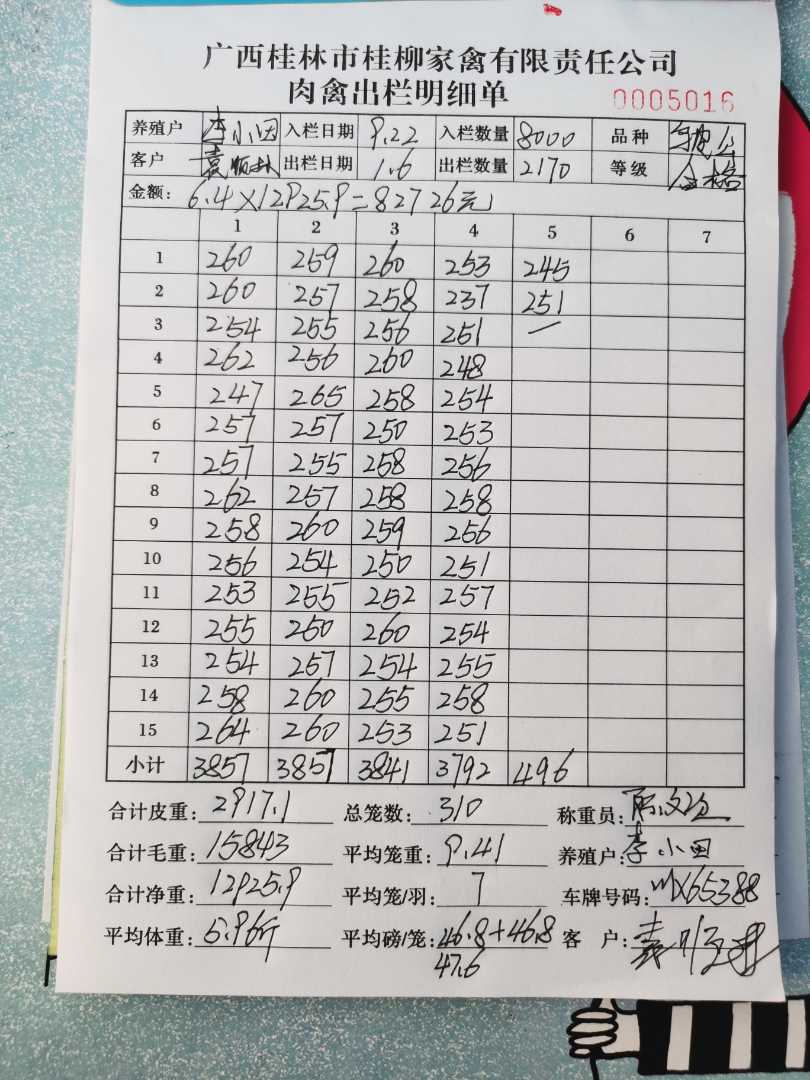 广西桂林市桂柳家禽有限责任公司
肉禽出栏明细单 0005016
养殖户 李小田 入栏日期 9.22 入栏数量 8000 品种
客户 出栏日期 1.6 出栏数量 2170 等级 合格
金额: 6.4×12925.9=82726元
1 2 3 4 5 6 7
1 260 259 260 253 245
2 260 257 258 237 251
3 254 255 256 251 —
4 262 256 260 248
5 247 265 258 254
6 257 257 250 253
7 257 255 258 256
8 262 257 258 258
9 258 260 259 256
10 256 254 250 251
11 253 255 252 257
12 255 250 260 254
13 254 257 254 255
14 258 260 255 258
15 264 260 253 251
小计 3857 3857 3841 3792 496
合计皮重: 2917.1 总笼数: 310 称重员:
合计毛重: 15843 平均笼重: 9.41 养殖户: 李小田
合计净重: 12925.9 平均笼/羽: 7 车牌号码: 65388
平均体重: 5.96斤 平均磅/笼: 46.8+46.8 客 户:
47.6